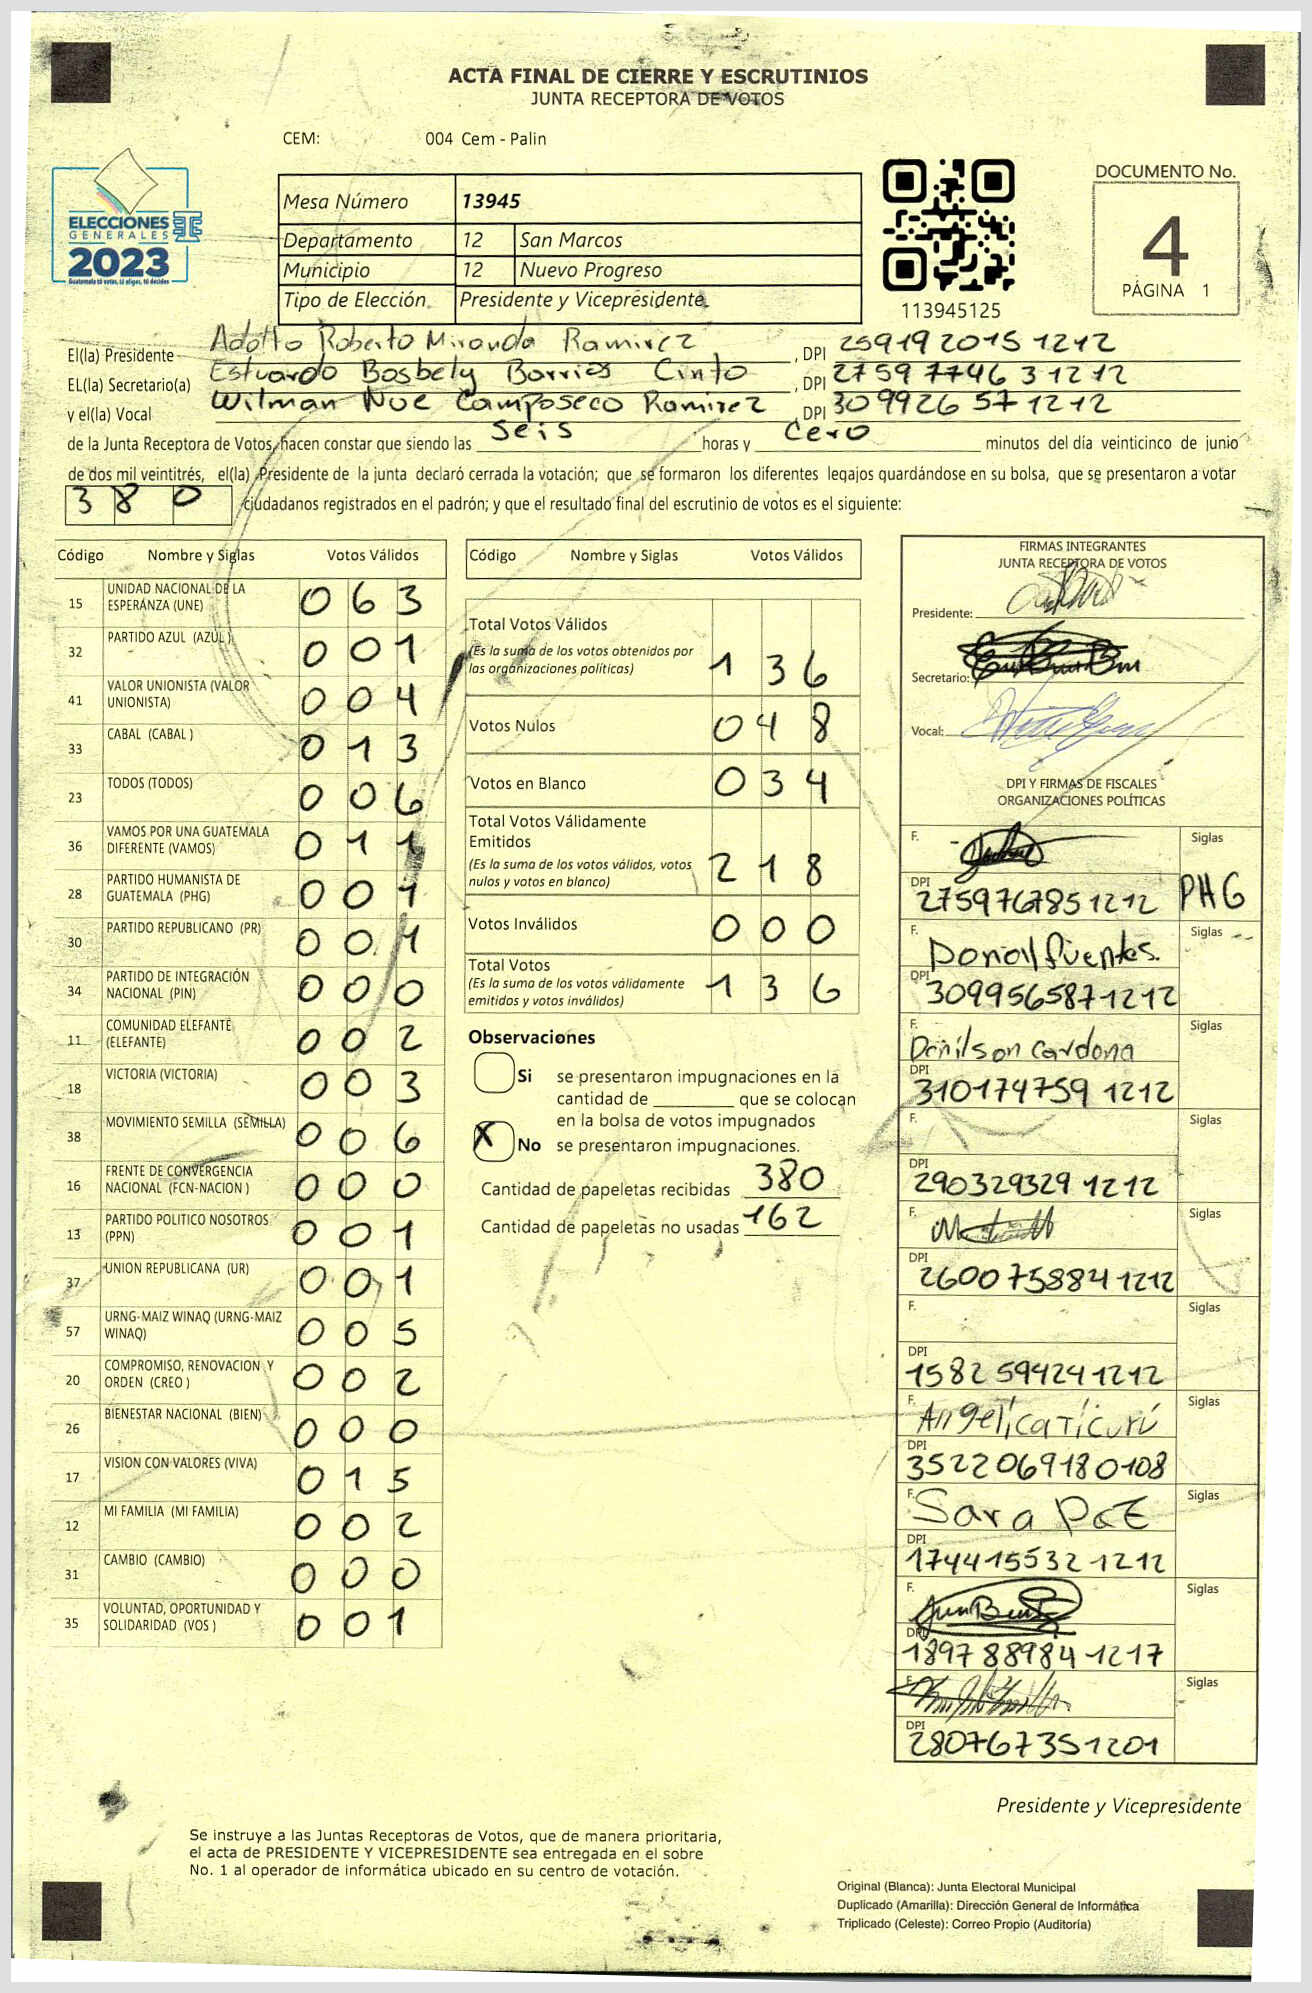 ACTA FINAL DE CIERRE Y ESCRUTINIOS
JUNTA RECEPTORA DE VOTOS
CEM: 004 Cem - Palin
ELECCIONES
GENERALES
2023
Guatemala tú votas, tú eliges, tú decides
TSE
Mesa Número 13945
Departamento 12 San Marcos
Municipio 12 Nuevo Progreso
Tipo de Elección Presidente y Vicepresidente
113945125
DOCUMENTO No.
4
PÁGINA 1
El(la) Presidente Adolfo Roberto Miranda Ramirez, DPI 259192015 1212
EL(la) Secretario(a) Estuardo Bosbely Barrios Cinto, DPI 2759 77463 1212
y el(la) Vocal Wilman Noe Camposeco Ramirez, DPI 309926 57 1212
de la Junta Receptora de Votos, hacen constar que siendo las seis horas y cero minutos del día veinticinco de junio
de dos mil veintitrés, el(la) Presidente de la junta declaró cerrada la votación; que se formaron los diferentes legajos guardándose en su bolsa, que se presentaron a votar
380 ciudadanos registrados en el padrón; y que el resultado final del escrutinio de votos es el siguiente:
Código Nombre y Siglas Votos Válidos
15 UNIDAD NACIONAL DE LA ESPERANZA (UNE) 063
32 PARTIDO AZUL (AZUL) 001
41 VALOR UNIONISTA (VALOR UNIONISTA) 004
33 CABAL (CABAL ) 013
23 TODOS (TODOS) 006
36 VAMOS POR UNA GUATEMALA DIFERENTE (VAMOS) 011
28 PARTIDO HUMANISTA DE GUATEMALA (PHG) 001
30 PARTIDO REPUBLICANO (PR) 001
34 PARTIDO DE INTEGRACIÓN NACIONAL (PIN) 000
11 COMUNIDAD ELEFANTE (ELEFANTE) 002
18 VICTORIA (VICTORIA) 003
38 MOVIMIENTO SEMILLA (SEMILLA) 006
16 FRENTE DE CONVERGENCIA NACIONAL (FCN-NACION ) 000
13 PARTIDO POLITICO NOSOTROS (PPN) 001
37 UNION REPUBLICANA (UR) 001
57 URNG-MAIZ WINAQ (URNG-MAIZ WINAQ) 005
20 COMPROMISO, RENOVACION Y ORDEN (CREO ) 002
26 BIENESTAR NACIONAL (BIEN) 000
17 VISION CON VALORES (VIVA) 015
12 MI FAMILIA (MI FAMILIA) 002
31 CAMBIO (CAMBIO) 000
35 VOLUNTAD, OPORTUNIDAD Y SOLIDARIDAD (VOS ) 001
Código Nombre y Siglas Votos Válidos
Total Votos Válidos 136
(Es la suma de los votos obtenidos por
las organizaciones políticas)
Votos Nulos 048
Votos en Blanco 034
Total Votos Válidamente
Emitidos 218
(Es la suma de los votos válidos, votos
nulos y votos en blanco)
Votos Inválidos 000
Total Votos 136
(Es la suma de los votos válidamente
emitidos y votos inválidos)
Observaciones
Si se presentaron impugnaciones en la
cantidad de ________ que se colocan
en la bolsa de votos impugnados
X No se presentaron impugnaciones.
Cantidad de papeletas recibidas 380
Cantidad de papeletas no usadas 162
FIRMAS INTEGRANTES
JUNTA RECEPTORA DE VOTOS
Presidente:
Secretario:
Vocal:
DPI Y FIRMAS DE FISCALES
ORGANIZACIONES POLÍTICAS
F. Siglas
DPI 275976785 1212 PHG
F. Donal fuentes. Siglas
DPI 309956587 1212
F. Denilson Cardona Siglas
DPI 310174759 1212
F. Siglas
DPI 290329329 1212
F. Siglas
DPI 260075884 1212
F. Siglas
DPI 1582 59424 1212
F. Angelica Ticurú Siglas
DPI 352206918 0108
F. Sara Siglas
DPI 174415532 1212
F. Siglas
DPI 1897 88984 1217
F. Siglas
DPI 280767351201
Presidente y Vicepresidente
Se instruye a las Juntas Receptoras de Votos, que de manera prioritaria,
el acta de PRESIDENTE Y VICEPRESIDENTE sea entregada en el sobre
No. 1 al operador de informática ubicado en su centro de votación.
Original (Blanca): Junta Electoral Municipal
Duplicado (Amarilla): Dirección General de Informática
Triplicado (Celeste): Correo Propio (Auditoría)